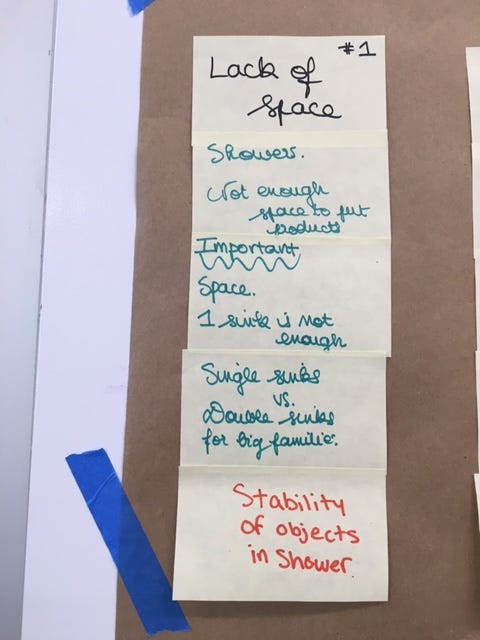 #1
Lack of
space
Shower.
Not enough
space to put
products
Important
Space.
1 sink is not
enough
Single sinks
vs.
Double sinks
for big familie.
Stability
of objects
in Shower